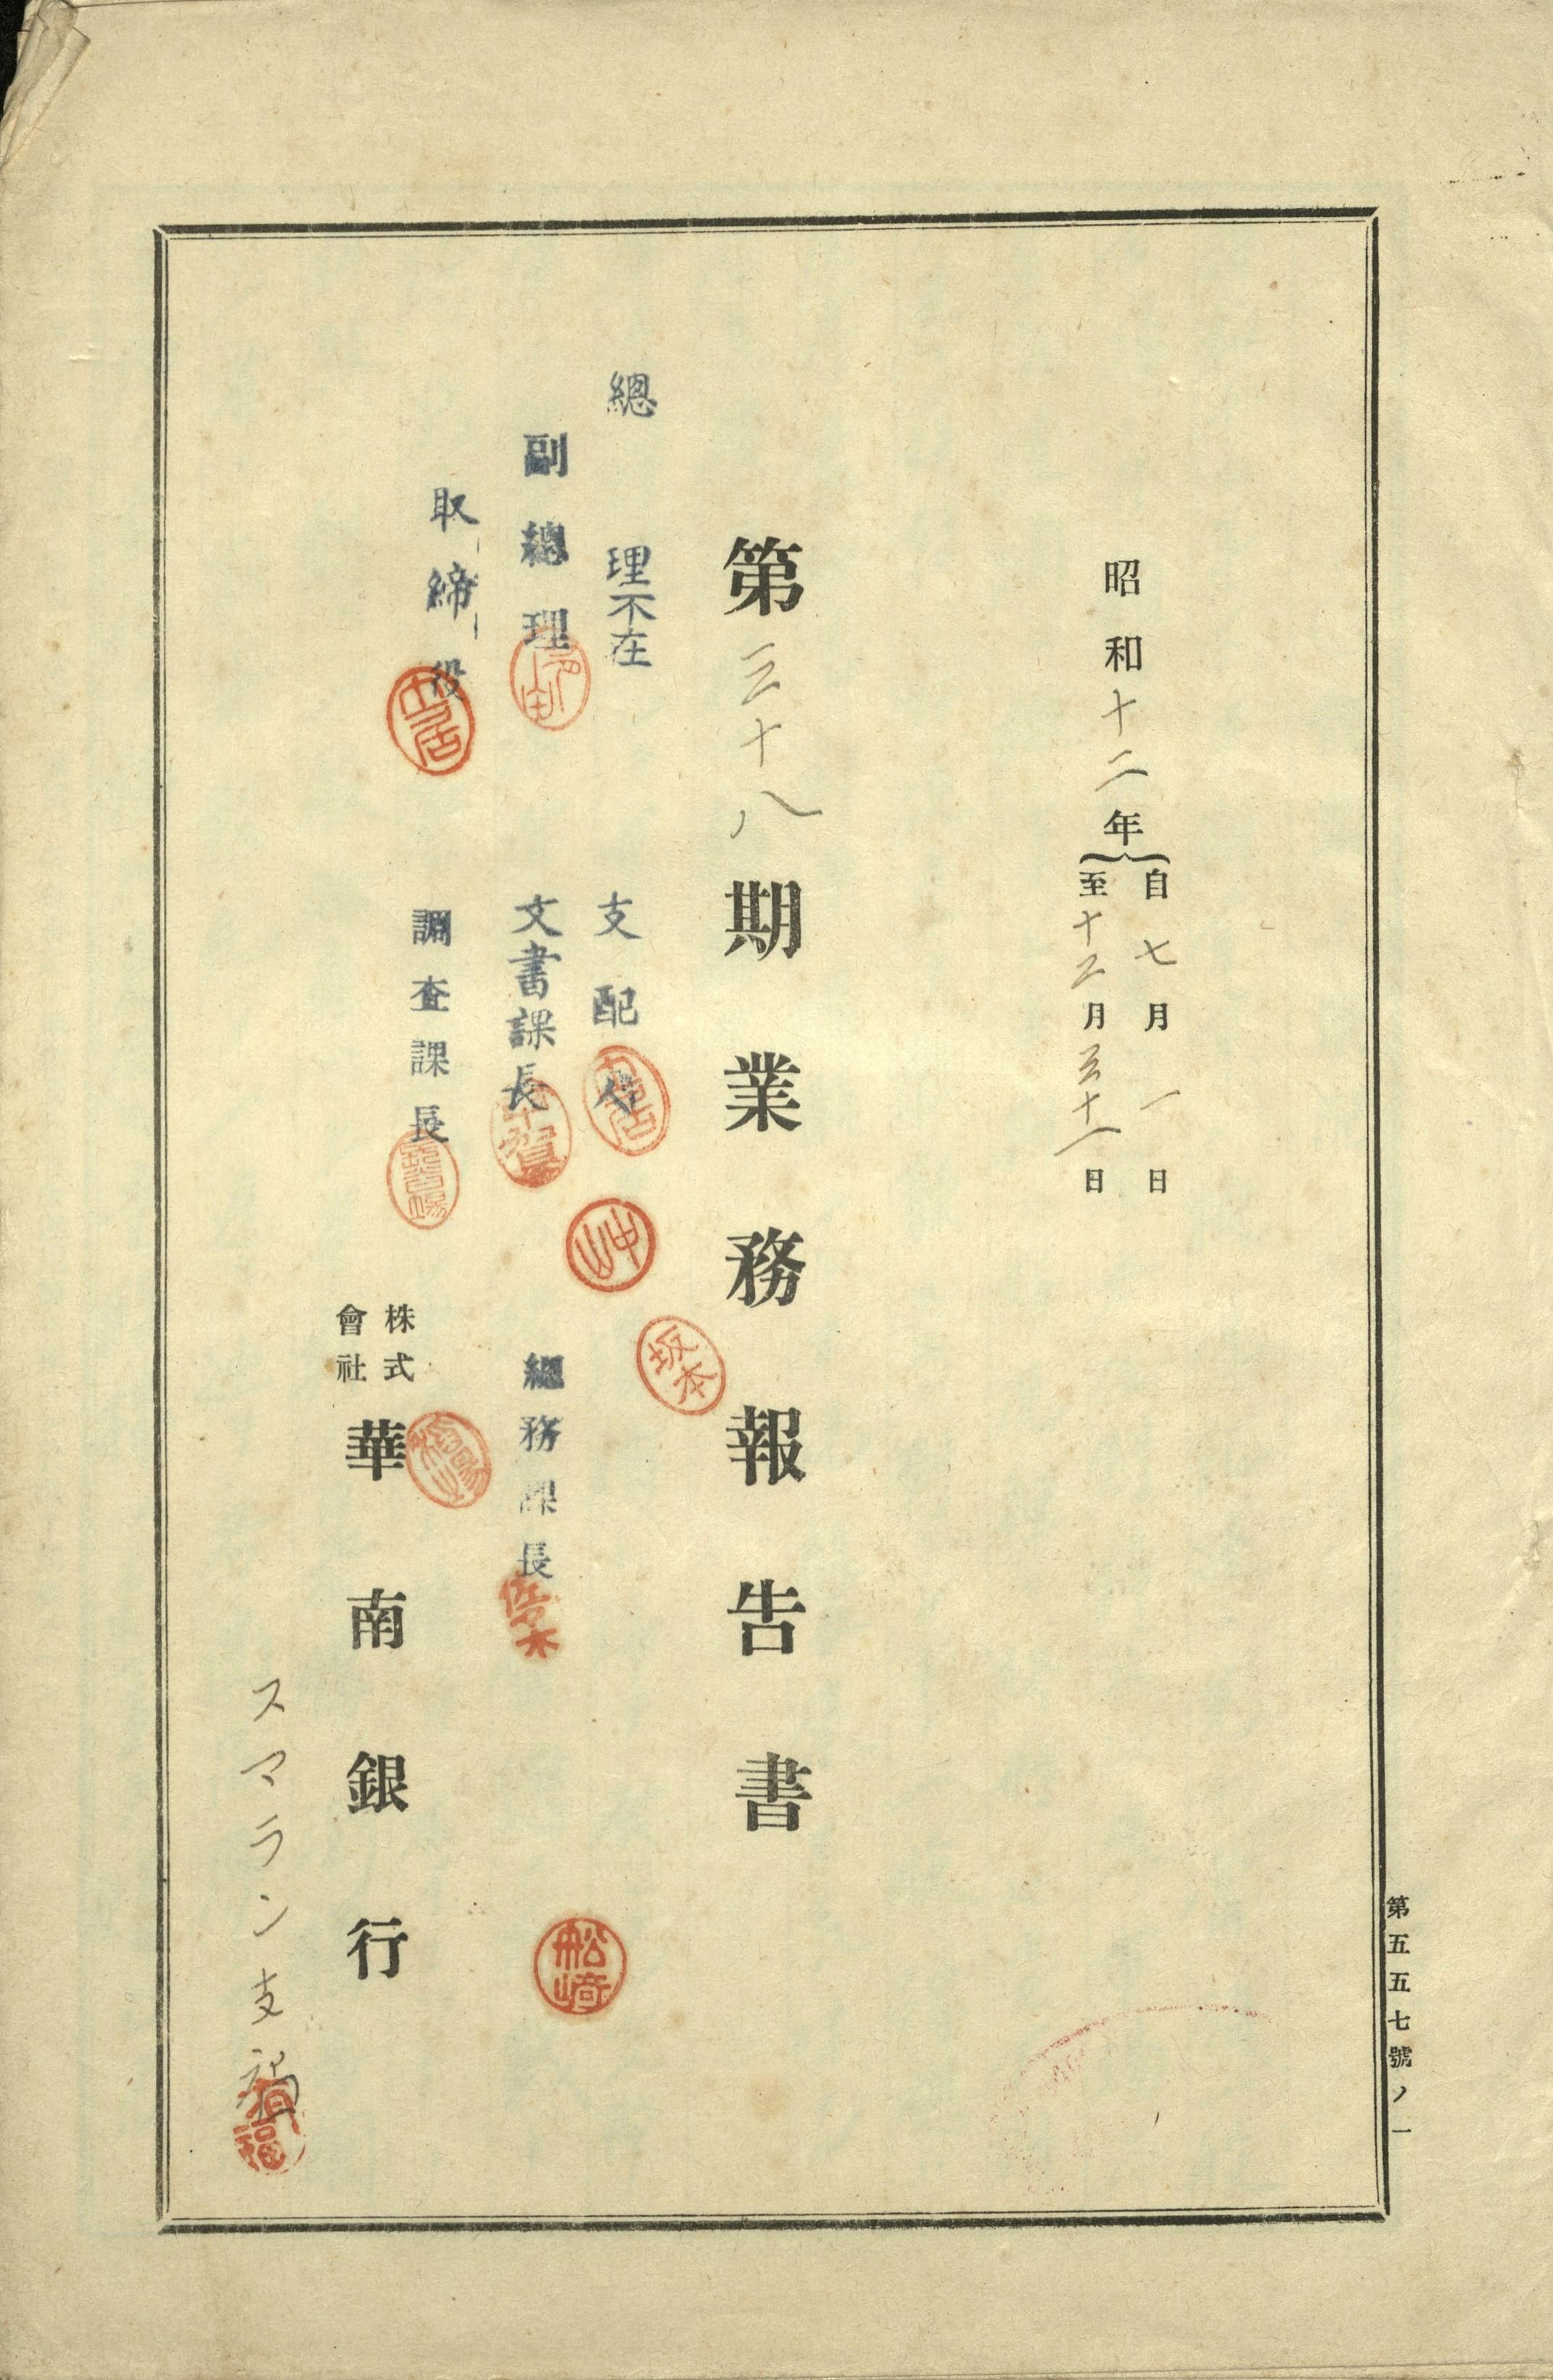 昭和十二年
自七月一日
至十二月三十一日
第三十八期業務報告書
總理不在
副總理
取締役
支配人
文書課長
調査課長
坂本
總務課長
佐々木
松崎
株式會社
華南銀行
スマラン支
有福
第五五七號ノ一